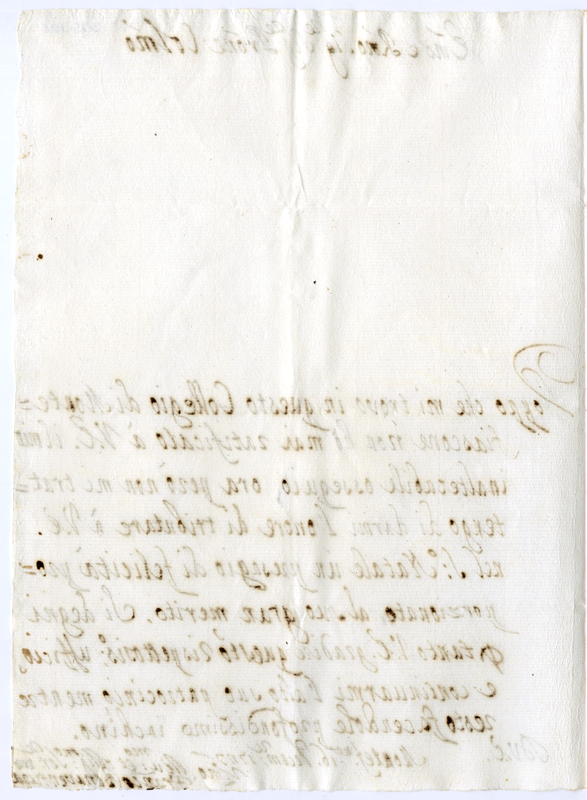 Emo e Rmo Sig. Padrone Colmo
oggo che mi trovo in questo Collegio di Monte=
fiascone non hò mai ratificato à V.E. il mio
inalterabile ossequio, ora però non mi trat=
tengo di darmi l'onore di tributare à V.E.
nel S. Natale un presagio di felicità pro=
porzionate al suo gran merito. Si degni
pertanto V.E. gradire questo ufficio,
e continuarmi l'alto suo patrocinio mentre
resto facendole profondissimo inchino.